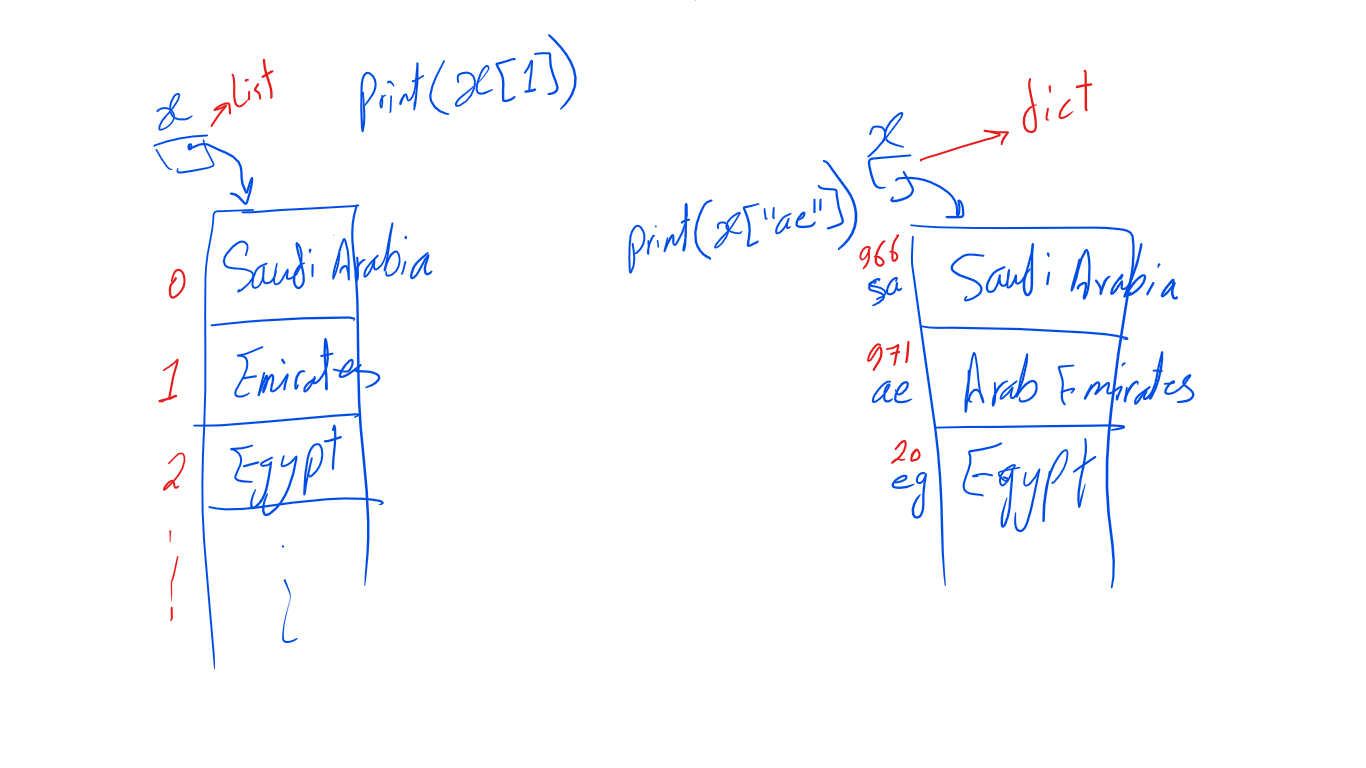 x
List
print(x[1])
0
Saudi Arabia
1
Emirates
2
Egypt
x
dict
print(x["ae"])
966
sa
Saudi Arabia
971
ae
Arab Emirates
20
eg
Egypt